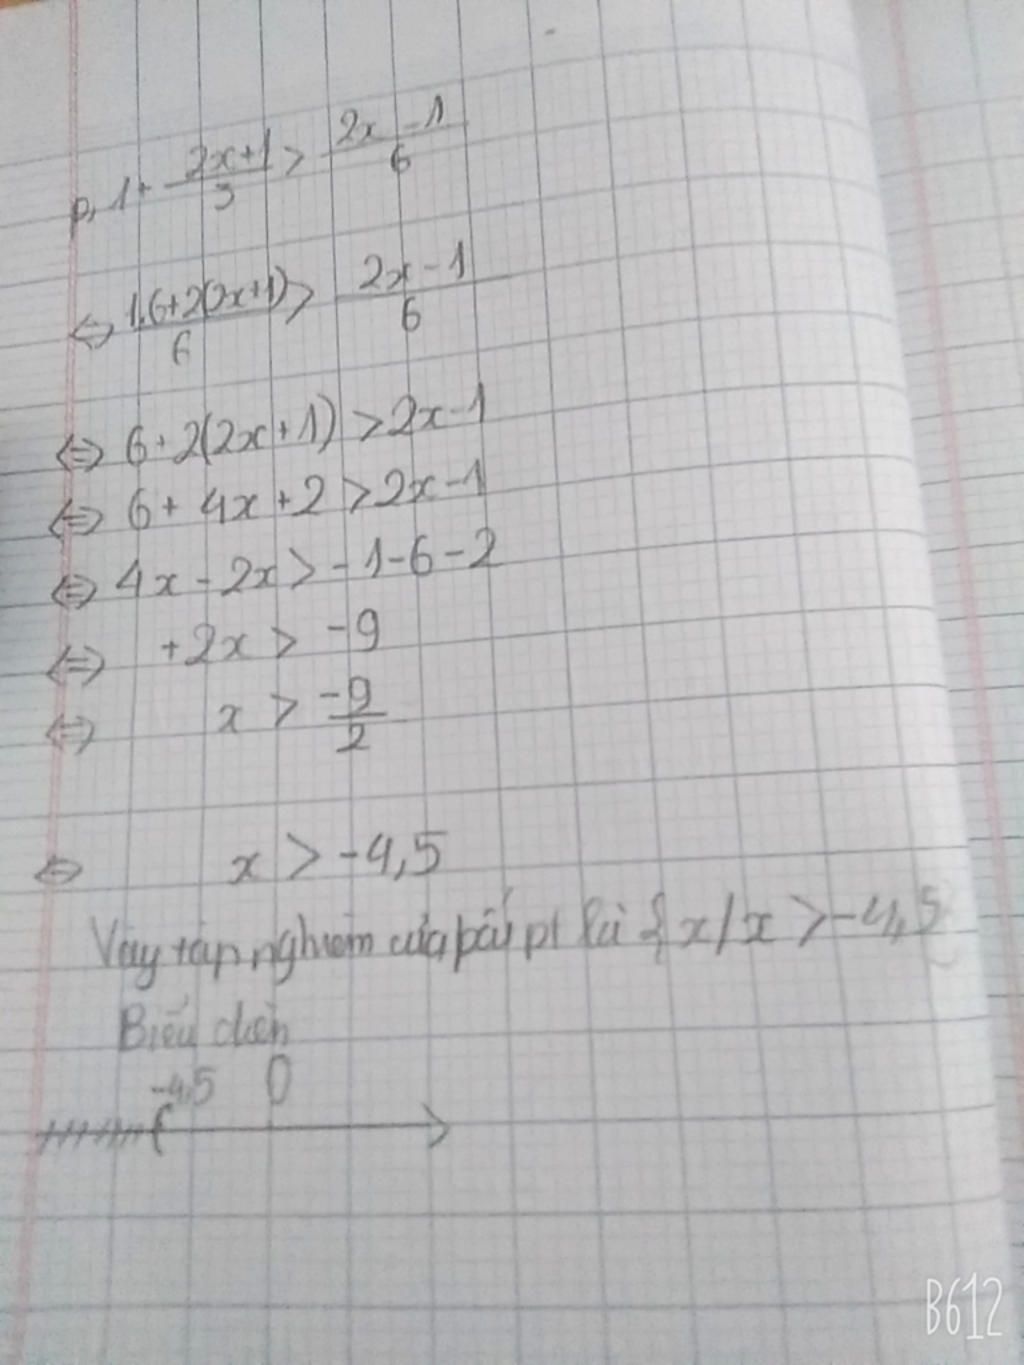 p, 1 + 2x+1/3 > 2x - 1/6
⇔ 1.6+2(2x+1)/6 > 2x - 1/6
⇔ 6 + 2(2x + 1) > 2x - 1
⇔ 6 + 4x + 2 > 2x - 1
⇔ 4x - 2x > - 1 - 6 - 2
⇔ + 2x > - 9
⇔ x > -9/2
⇔ x > -4,5
Vậy tập nghiệm của bất pt là { x / x > -4,5
Biểu diễn
-4,5 0
B612